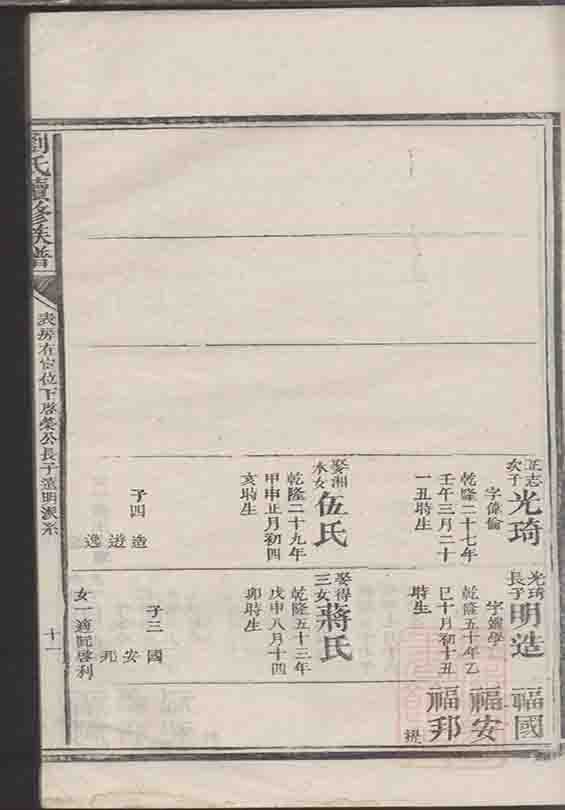 正志
次子
光琦
字偉倫
乾隆二十七年
壬午三月二十
一丑時生
娶湘
水女
伍氏
乾隆二十九年
甲申正月初四
亥時生
子四
造
遊
逸
光琦
長子
明造
乾隆五十年乙
巳十月初十五
時生
娶得
三女
蔣氏
乾隆五十三年
戊申八月十四
卯時生
子三
國
安
女一適阮啓利
福國
福安
福邦
劉氏續修族譜
表房右宣位下啓榮公長子遠明派系
十一